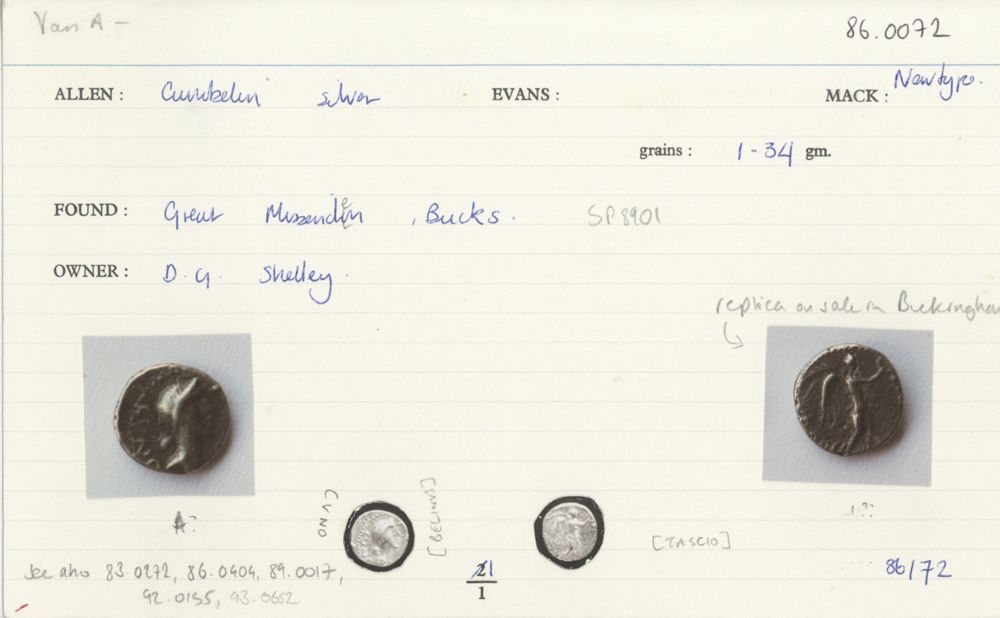 Van A -
86.0072
ALLEN : Cunobelin silver EVANS : MACK : New type.
grains : 1.34 gm.
FOUND : Great Missenden , Bucks. SP8901
OWNER : D.G. Shelley.
replica on sale in Buckingham
A?
CVNO
[BELINVS]
[TASCIO]
see also 83 0272, 86.0404, 89.0017,
92.0195, 93.0652
21
1
86/72